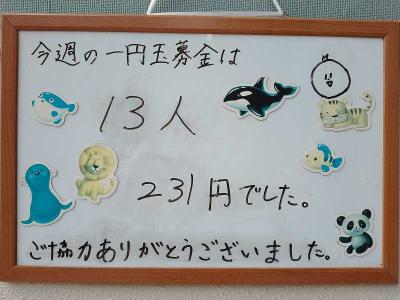 今週の一円玉募金は
13人
231円でした。
ご協力ありがとうございました。